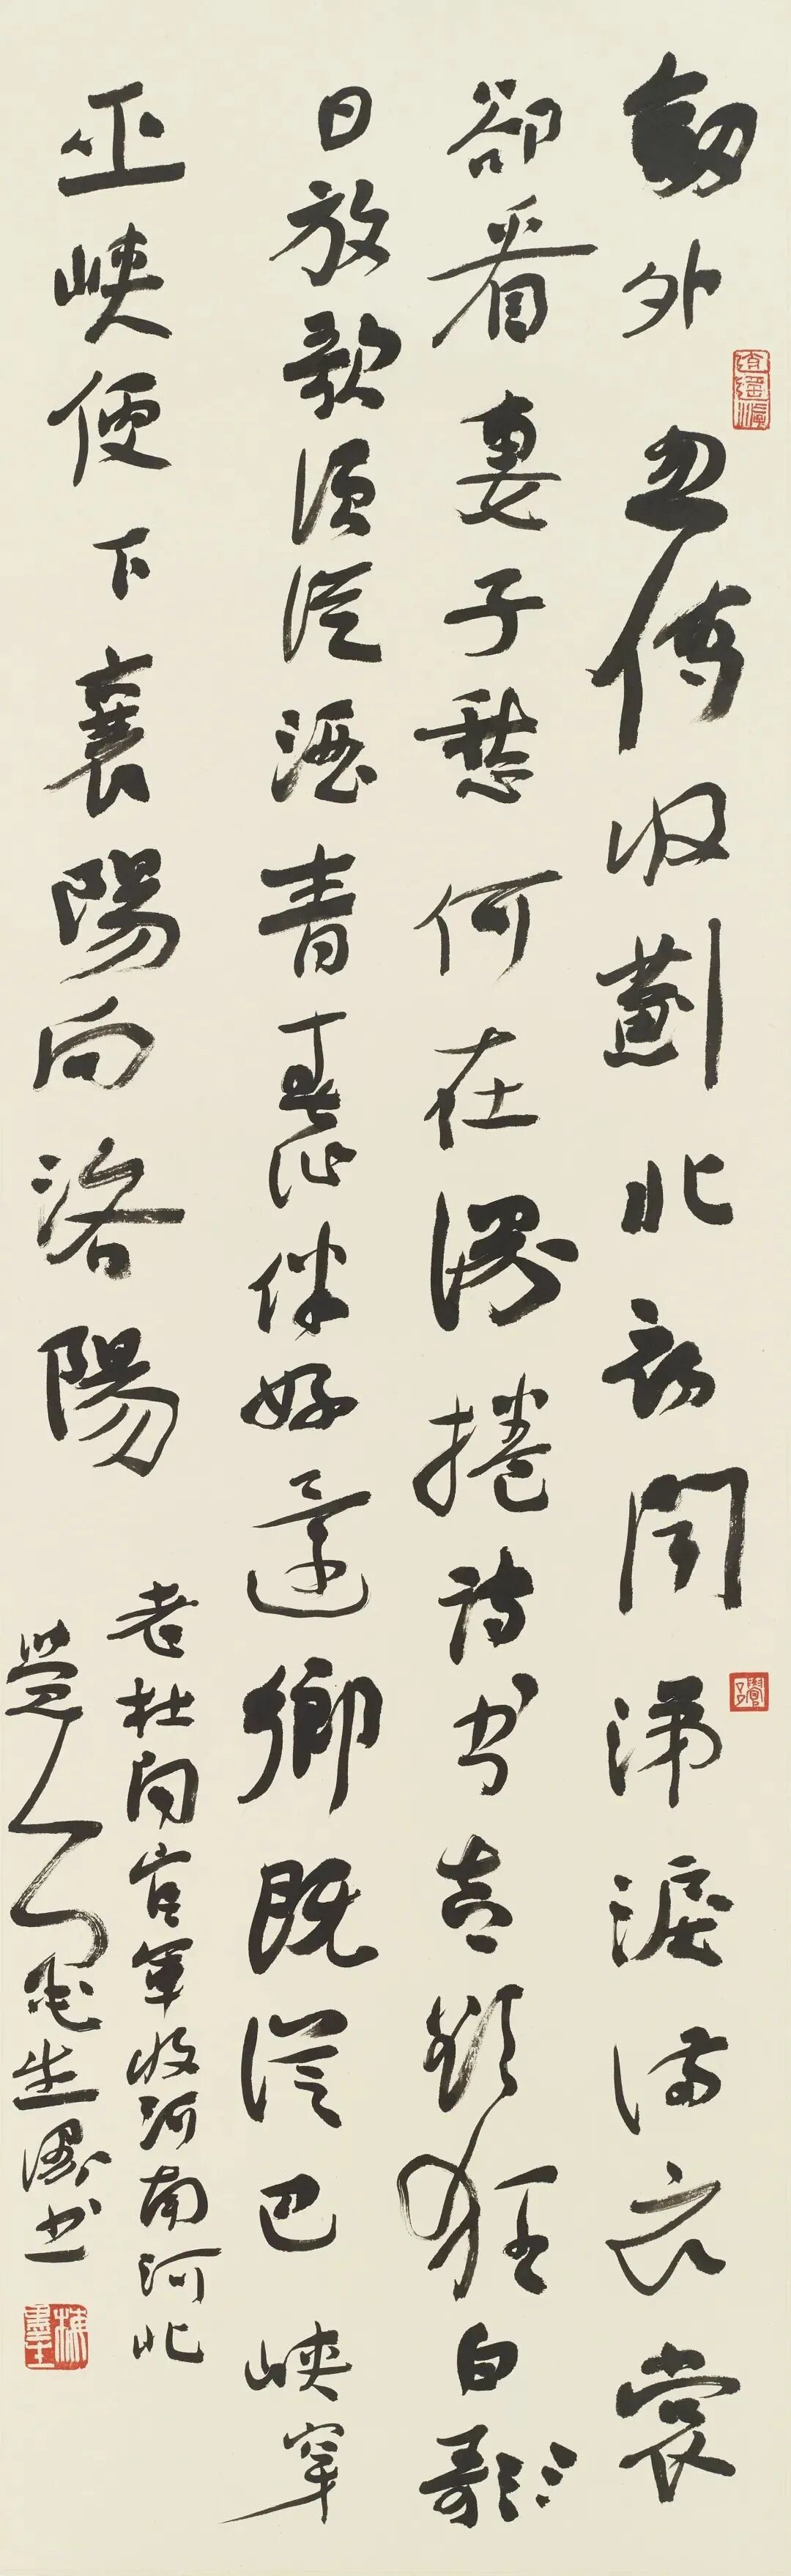 劍外忽傳收薊北初聞涕淚滿衣裳
卻看妻子愁何在漫捲詩書喜欲狂白歌
日放歌須從酒青春作伴好還鄉既從巴峽穿
巫峽便下襄陽向洛陽
老杜聞官軍收河南河北
覺公墨生漫書